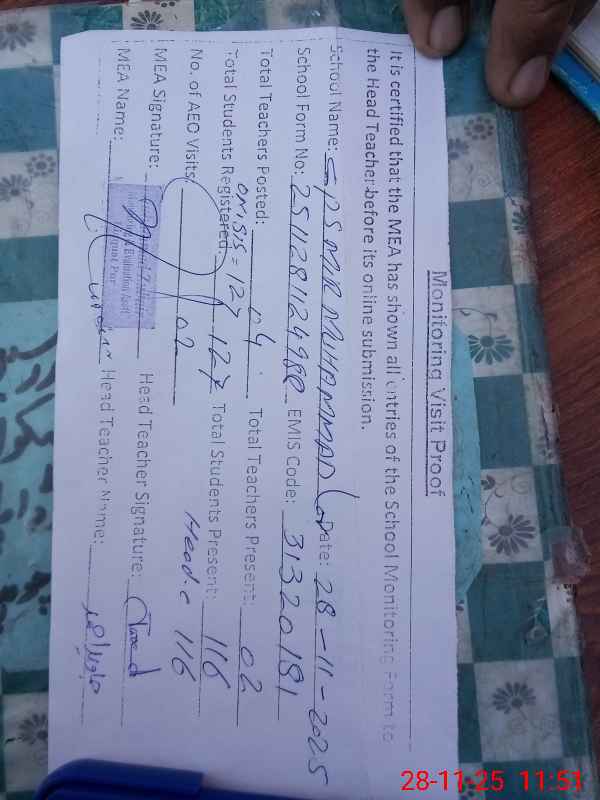 Monitoring Visit Proof
It is certified that the MEA has shown all entries of the School Monitoring Form to
the Head Teacher before its online submission.
School Name: GPS MIR MUHAMMAD Date: 28-11-2025
School Form No: EMIS Code: 31320181
Total Teachers Posted: 04 Total Teachers Present: 02
on SIS = 127
Total Students Registered: 127 Total Students Present: 116
No. of AEO Visits: 02 Head.c 116
MEA Signature: Head Teacher Signature:
MEA Name: Head Teacher Name:
28-11-25 11:51